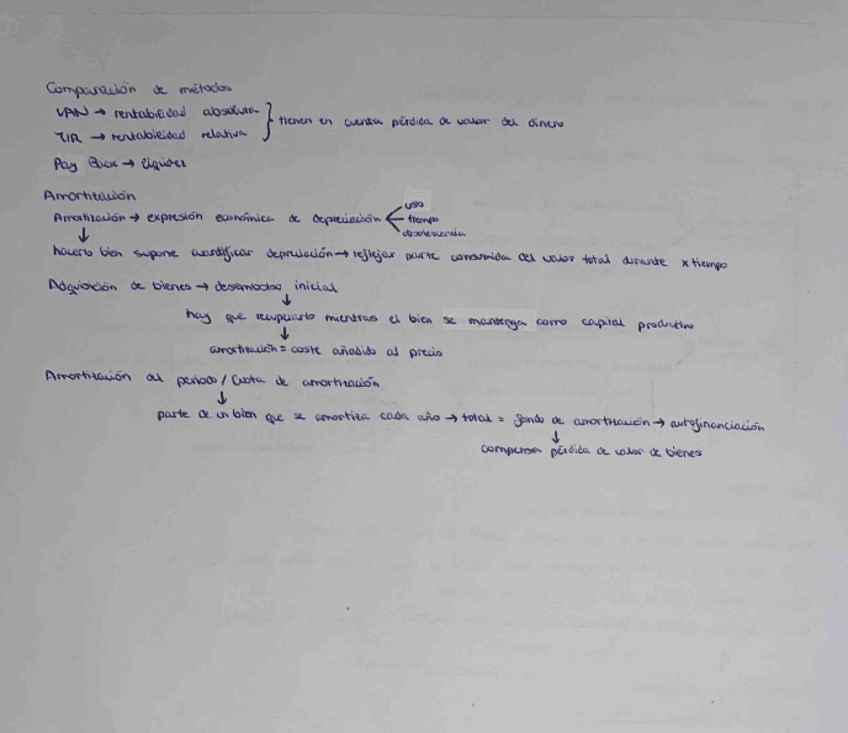 Comparación de métodos
VAN → rentabilidad absoluta
TIR → rentabilidad relativa } tienen en cuenta pérdida de valor del dinero
Pay Back → liquidez
Amortización
Amortización → expresión económica de depreciación < uso
tiempo
obsolescencia
↓
hacerlo bien supone cuantificar depreciación → reflejar parte consumida del valor total durante x tiempo
Adquisición de bienes → desembolso inicial
↓
hay que recuperarlo mientras el bien se mantenga como capital productivo
↓
amortización = coste añadido al precio
Amortización del periodo / Cuota de amortización
↓
parte de un bien que se amortiza cada año → total = fondo de amortización → autofinanciación
↓
compensa pérdida de valor de bienes